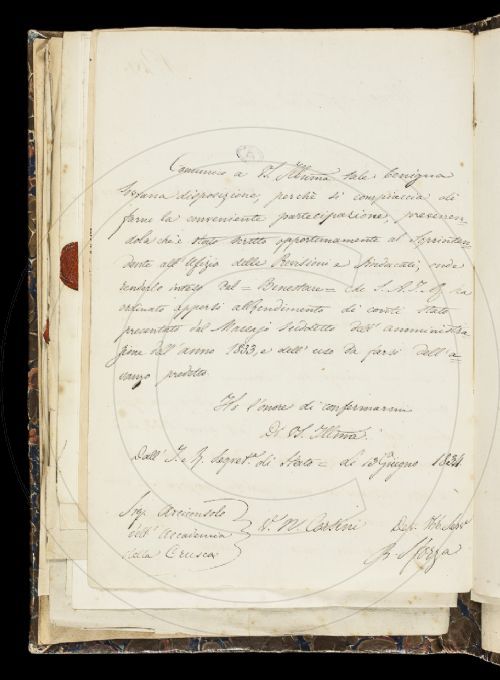 Comunico a VS. Illma tale benigna
Sovrana disposizione, perchè si compiaccia di
farne la conveniente partecipazione, prevenen-
dola che è stato scritto opportunamente al Soprinten-
dente all'Ufizio delle Revisioni e Sindacati, onde
renderlo inteso del = Benestare = che S. A. I. R. ha
ordinato apporsi al Rendimento di conti stato
presentato dal Massajo suddetto dell'amministra-
zione dell'anno 1833, e dell'uso da farsi dell'a-
vanzo predetto.
Ho l'onore di confermarmi
Di VS. Illma.
Dall' I. e R. Segret.ª di Stato = li 13 Giugno 1834.
Sig. Arciconsolo
dell'Accademia
della Crusca
V.º N. Corsini
Dev. Obb. Serv.
Sforza